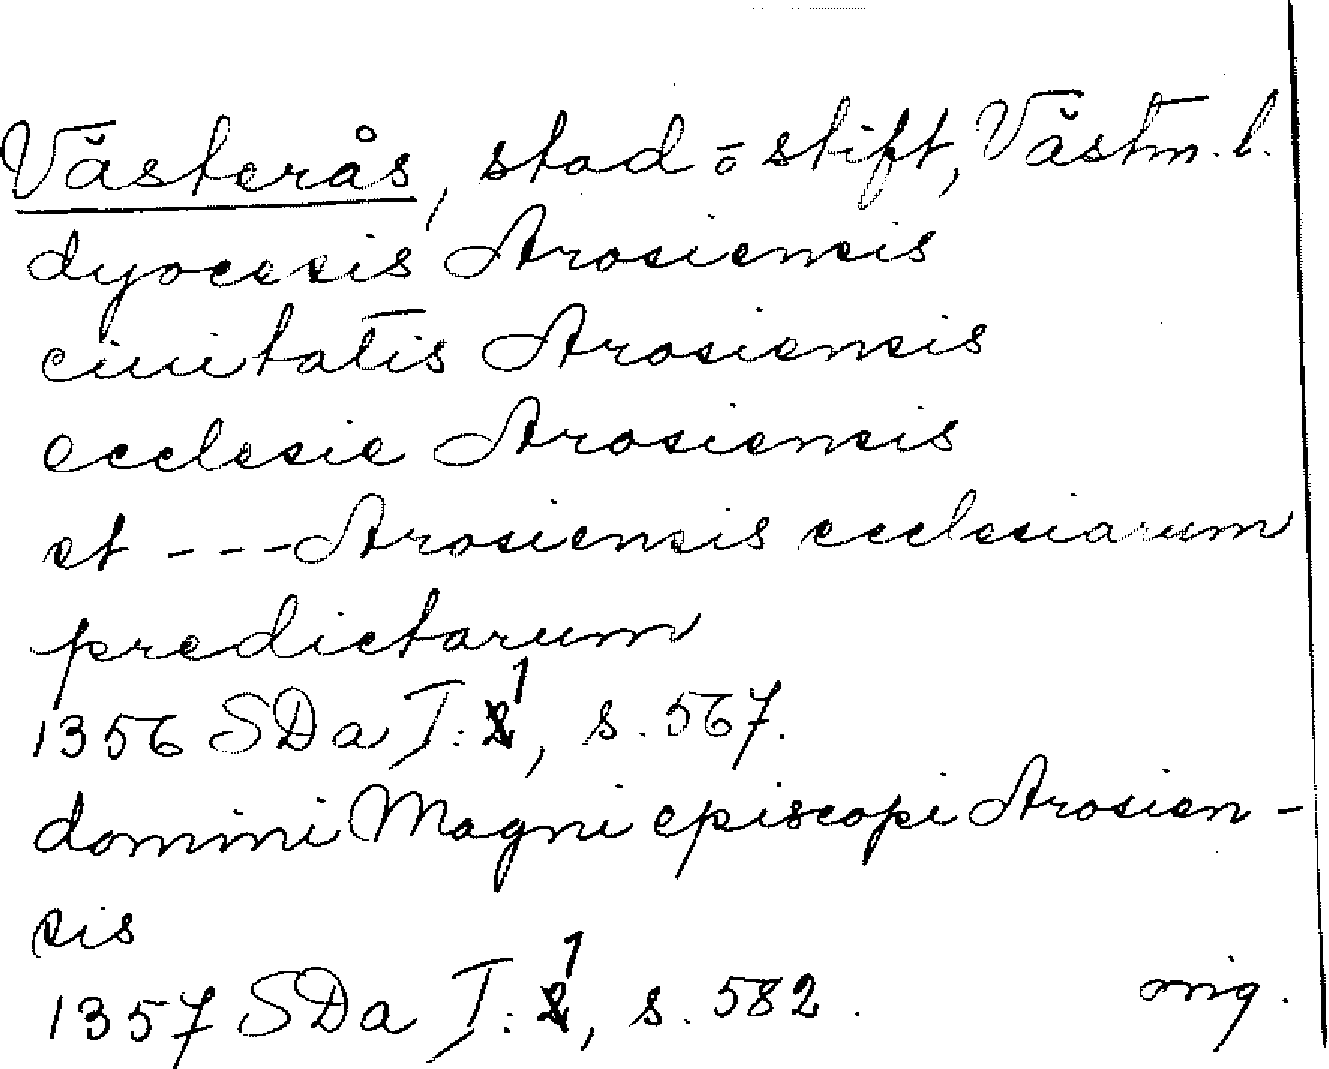 Västerås, stad o stift, Västm. l.
dyocesis Arosiensis
ciuitatis Arosiensis
ecclesie Arosiensis
et --- Arosiensis ecclesiarum
predictarum
1356 SDa I:1, s. 567.
domini Magni episcopi Arosien-
sis
1357 SDa I:1, s. 582. orig.